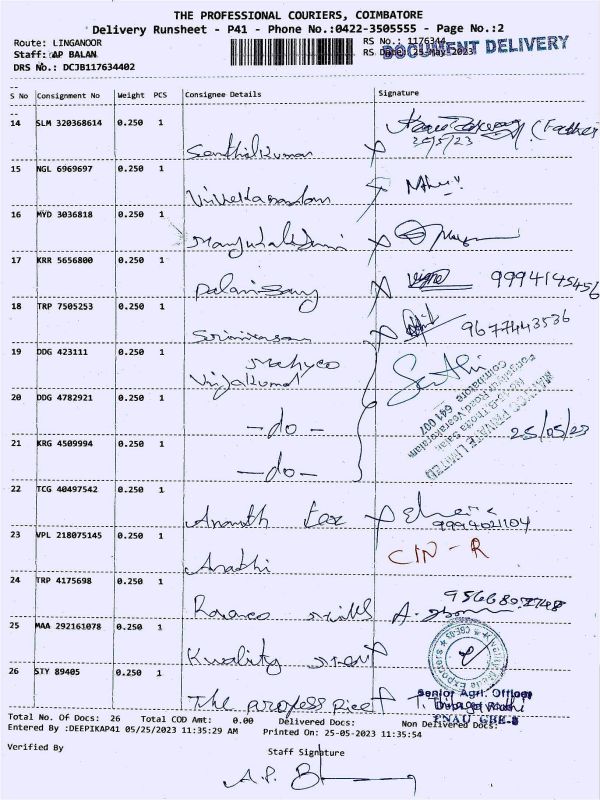 THE PROFESSIONAL COURIERS, COIMBATORE
Delivery Runsheet - P41 - Phone No.:0422-3505555 - Page No.:2
Route: LINGANOOR
RS No.: 1176344
Staff: AP BALAN
RS Date: 25-May-2023
DOCUMENT DELIVERY
DRS No.: DCJB117634402
S No Consignment No Weight PCS Consignee Details Signature
14 SLM 320368614 0.250 1 Senthilkumar (Father)
15 NGL 6969697 0.250 1 Vivekanandan
16 MYD 3036818 0.250 1
17 KRR 5656800 0.250 1 Palanisamy 9994145456
18 TRP 7505253 0.250 1 Srinivasan 9677443536
19 DDG 423111 0.250 1 Mahyco Vijaikumar Senthi
PRIVATE LIMITED
Coimbatore 641 007
20 DDG 4782921 0.250 1 -do- 25/05/23
21 KRG 4509994 0.250 1 -do-
22 TCG 40497542 0.250 1 Ananth Tex
23 VPL 218075145 0.250 1 Aradhi CIN-R
24 TRP 4175698 0.250 1
25 MAA 292161078 0.250 1 Kwality
26 STY 89405 0.250 1 The
Senior Agri. Officer
TNAU CBE-3
Total No. Of Docs: 26 Total COD Amt: 0.00 Delivered Docs: Non Delivered Docs:
Entered By :DEEPIKAP41 05/25/2023 11:35:29 AM Printed On: 25-05-2023 11:35:54
Verified By
Staff Signature
A.P. B